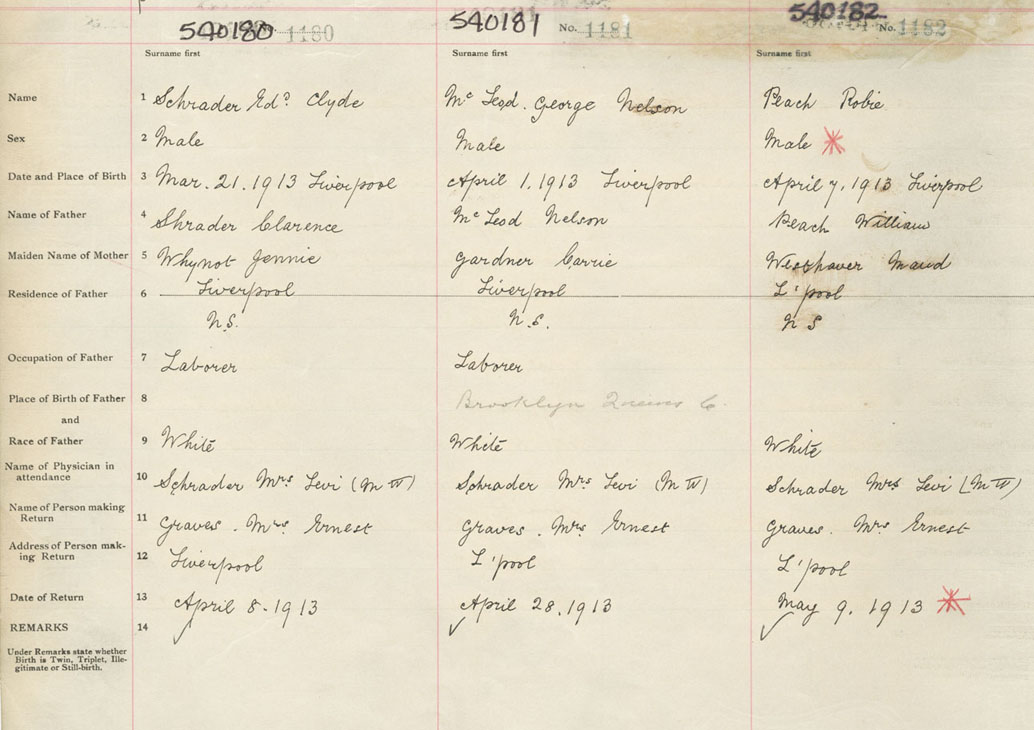 540180 1180 540181 No. 1181 540182 No. 1182
Surname first Surname first Surname first
Name 1 Schrader Edd Clyde Mc Leod. George Nelson Peach Robie
Sex 2 Male Male Male
Date and Place of Birth 3 Mar. 21. 1913 Liverpool April 1. 1913 Liverpool April 7. 1913 Liverpool
Name of Father 4 Shrader Clarence Mc Leod Nelson Peach William
Maiden Name of Mother 5 Whynot Jennie Gardner Carrie Weaghaver Maud
Residence of Father 6 Liverpool Liverpool L'pool
N.S. N.S. N S
Occupation of Father 7 Laborer Laborer
Place of Birth of Father 8 Brooklyn Queens Co.
and
Race of Father 9 White White White
Name of Physician in
attendance 10 Schrader Mrs Levi (M W) Schrader Mrs Levi (M W) Schrader Mrs Levi (M W)
Name of Person making
Return 11 Graves. Mrs Ernest Graves. Mrs Ernest Graves. Mrs Ernest
Address of Person mak-
ing Return 12 Liverpool L'pool L'pool
Date of Return 13 April 8-1913 April 28.1913 May 9. 1913
REMARKS 14
Under Remarks state whether
Birth is Twin, Triplet, Ille-
gitimate or Still-birth.